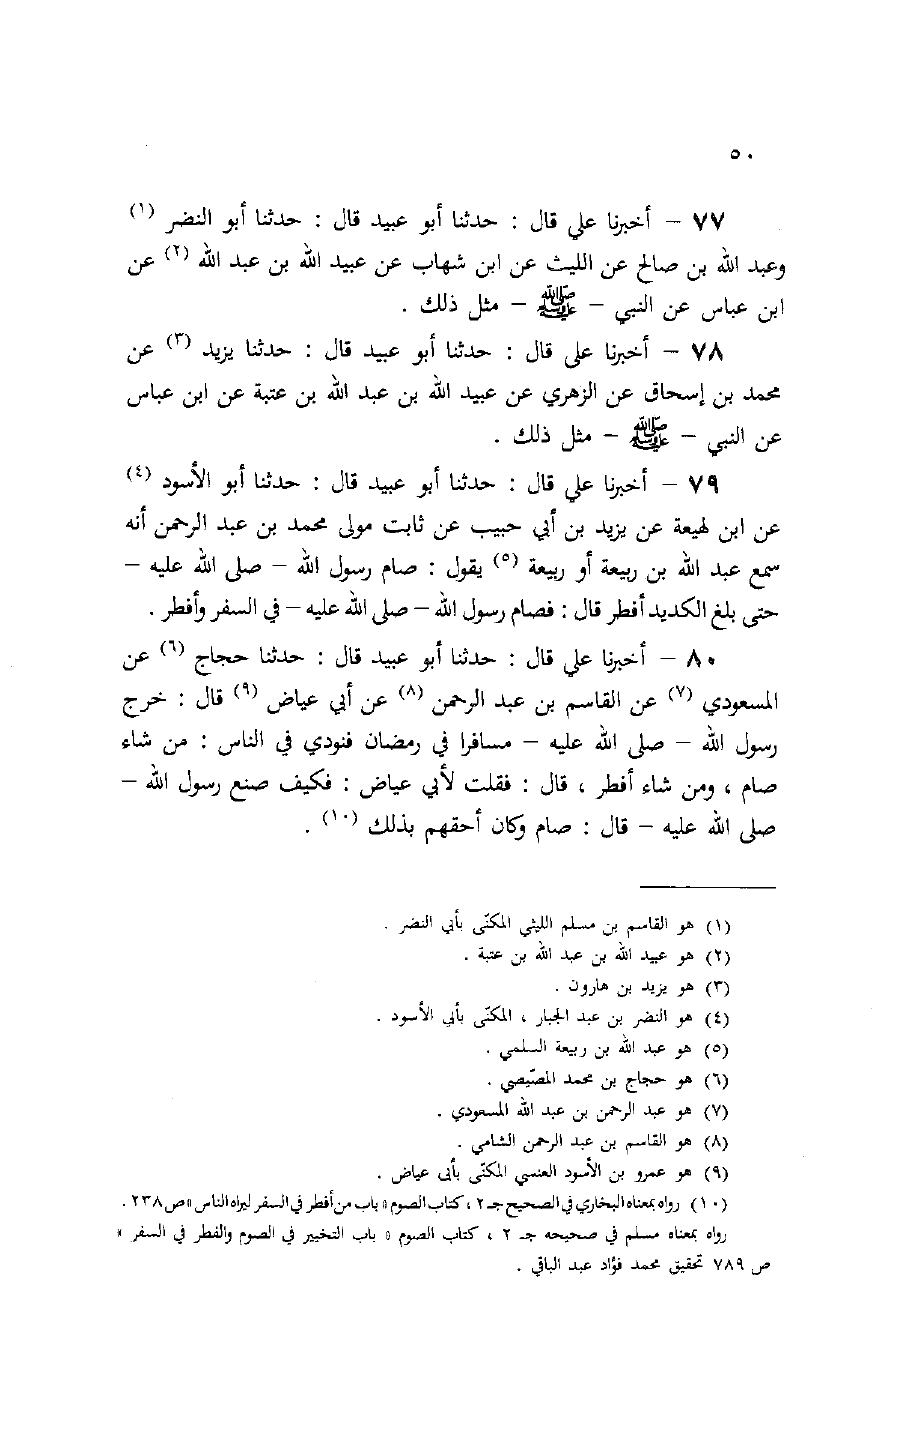 ٥٠
٧٧ – أخبرنا علي قال : حدثنا أبو عبيد قال : حدثنا أبو النضر (١)
وعبد الله بن صالح عن الليث عن ابن شهاب عن عبيد الله بن عبد الله (٢) عن
ابن عباس عن النبي – ﷺ – مثل ذلك .
٧٨ – أخبرنا علي قال : حدثنا أبو عبيد قال : حدثنا يزيد (٣) عن
محمد بن إسحاق عن الزهري عن عبيد الله بن عبد الله بن عتبة عن ابن عباس
عن النبي – ﷺ – مثل ذلك .
٧٩ – أخبرنا علي قال : حدثنا أبو عبيد قال : حدثنا أبو الأسود (٤)
عن ابن لهيعة عن يزيد بن أبي حبيب عن ثابت مولى محمد بن عبد الرحمن أنه
سمع عبد الله بن ربيعة أو ربيعة (٥) يقول : صام رسول الله – صلى الله عليه –
حتى بلغ الكديد أفطر قال : فصام رسول الله – صلى الله عليه – في السفر وأفطر .
٨٠ – أخبرنا علي قال : حدثنا أبو عبيد قال : حدثنا حجاج (٦) عن
المسعودي (٧) عن القاسم بن عبد الرحمن (٨) عن أبي عياض (٩) قال : خرج
رسول الله – صلى الله عليه – مسافرا في رمضان فنودي في الناس : من شاء
صام ، ومن شاء أفطر ، قال : فقلت لأبي عياض : فكيف صنع رسول الله –
صلى الله عليه – قال : صام وكان أحقهم بذلك (١٠) .
(١) هو القاسم بن مسلم الليثي المكنّى بأبي النضر .
(٢) هو عبيد الله بن عبد الله بن عتبة .
(٣) هو يزيد بن هارون .
(٤) هو النضر بن عبد الجبار ، المكنّى بأبي الأسود .
(٥) هو عبد الله بن ربيعة السلمي .
(٦) هو حجاج بن محمد المصّيصي .
(٧) هو عبد الرحمن بن عبد الله المسعودي .
(٨) هو القاسم بن عبد الرحمن الشامي .
(٩) هو عمرو بن الأسود العنسي المكنّى بأبي عياض .
(١٠) رواه بمعناه البخاري في الصحيح جـ ٢ ، كتاب الصوم « باب من أفطر في السفر ليراه الناس » ص ٢٣٨ .
رواه بمعناه مسلم في صحيحه جـ ٢ ، كتاب الصوم « باب التخيير في الصوم والفطر في السفر »
ص ٧٨٩ تحقيق محمد فؤاد عبد الباقي .